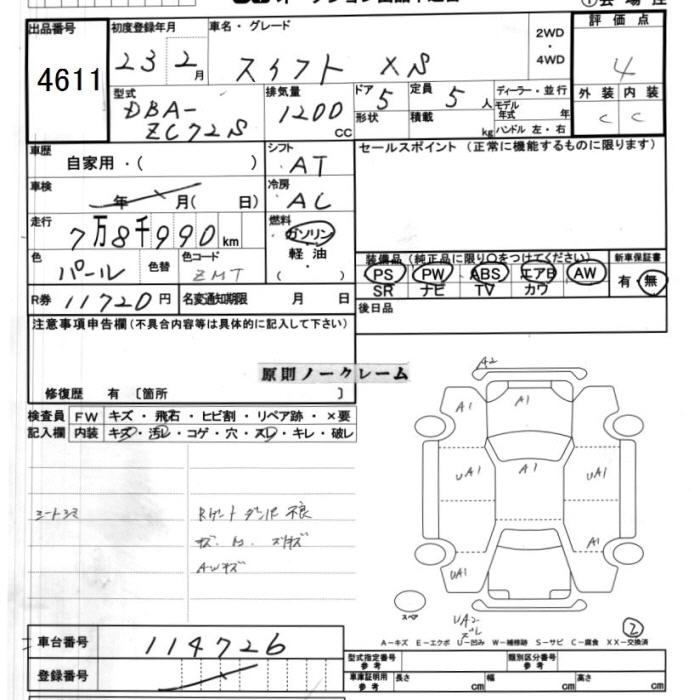 出品番号
4611
初度登録年月
23 2月
車名・グレード
スイフト XS
2WD
・
4WD
評価点
4
外装 内装
C C
型式
DBA-
ZC72S
排気量
1200
CC
ドア 5
形状
定員 5 人
積載 kg
ディーラー・並行
モデル年式 年
ハンドル 左・右
車歴
自家用・( )
シフト
AT
セールスポイント (正常に機能するものに限ります)
車検
年 月( 日)
冷房
AC
走行
7万8千990km
燃料
ガソリン
軽油
( )
色
パール
色替
色コード
ZMT
装備品 (純正品に限り○をつけてください)
PS PW ABS エアB AW
SR ナビ TV カワ
新車保証書
有・無
R券 11720円
名変通知期限 月 日
後日品
注意事項申告欄(不具合内容等は具体的に記入して下さい)
原則ノークレーム
修復歴 有 〔箇所 〕
検査員
記入欄
FW キズ・飛石・ヒビ割・リペア跡・×要
内装 キズ・汚レ・コゲ・穴・スレ・キレ・破レ
シートシミ
AWキズ
A2
A1 A1
UA1 A1 UA1
A1
UA1
スペア
UA2
ズレ
2
A-キズ E-エクボ U-凹み W-補修跡 S-サビ C-腐食 XX-交換済
車台番号
114726
登録番号
型式指定番号
参考
類別区分番号
参考
車庫証明用
参考
長さ cm 幅 cm 高さ cm